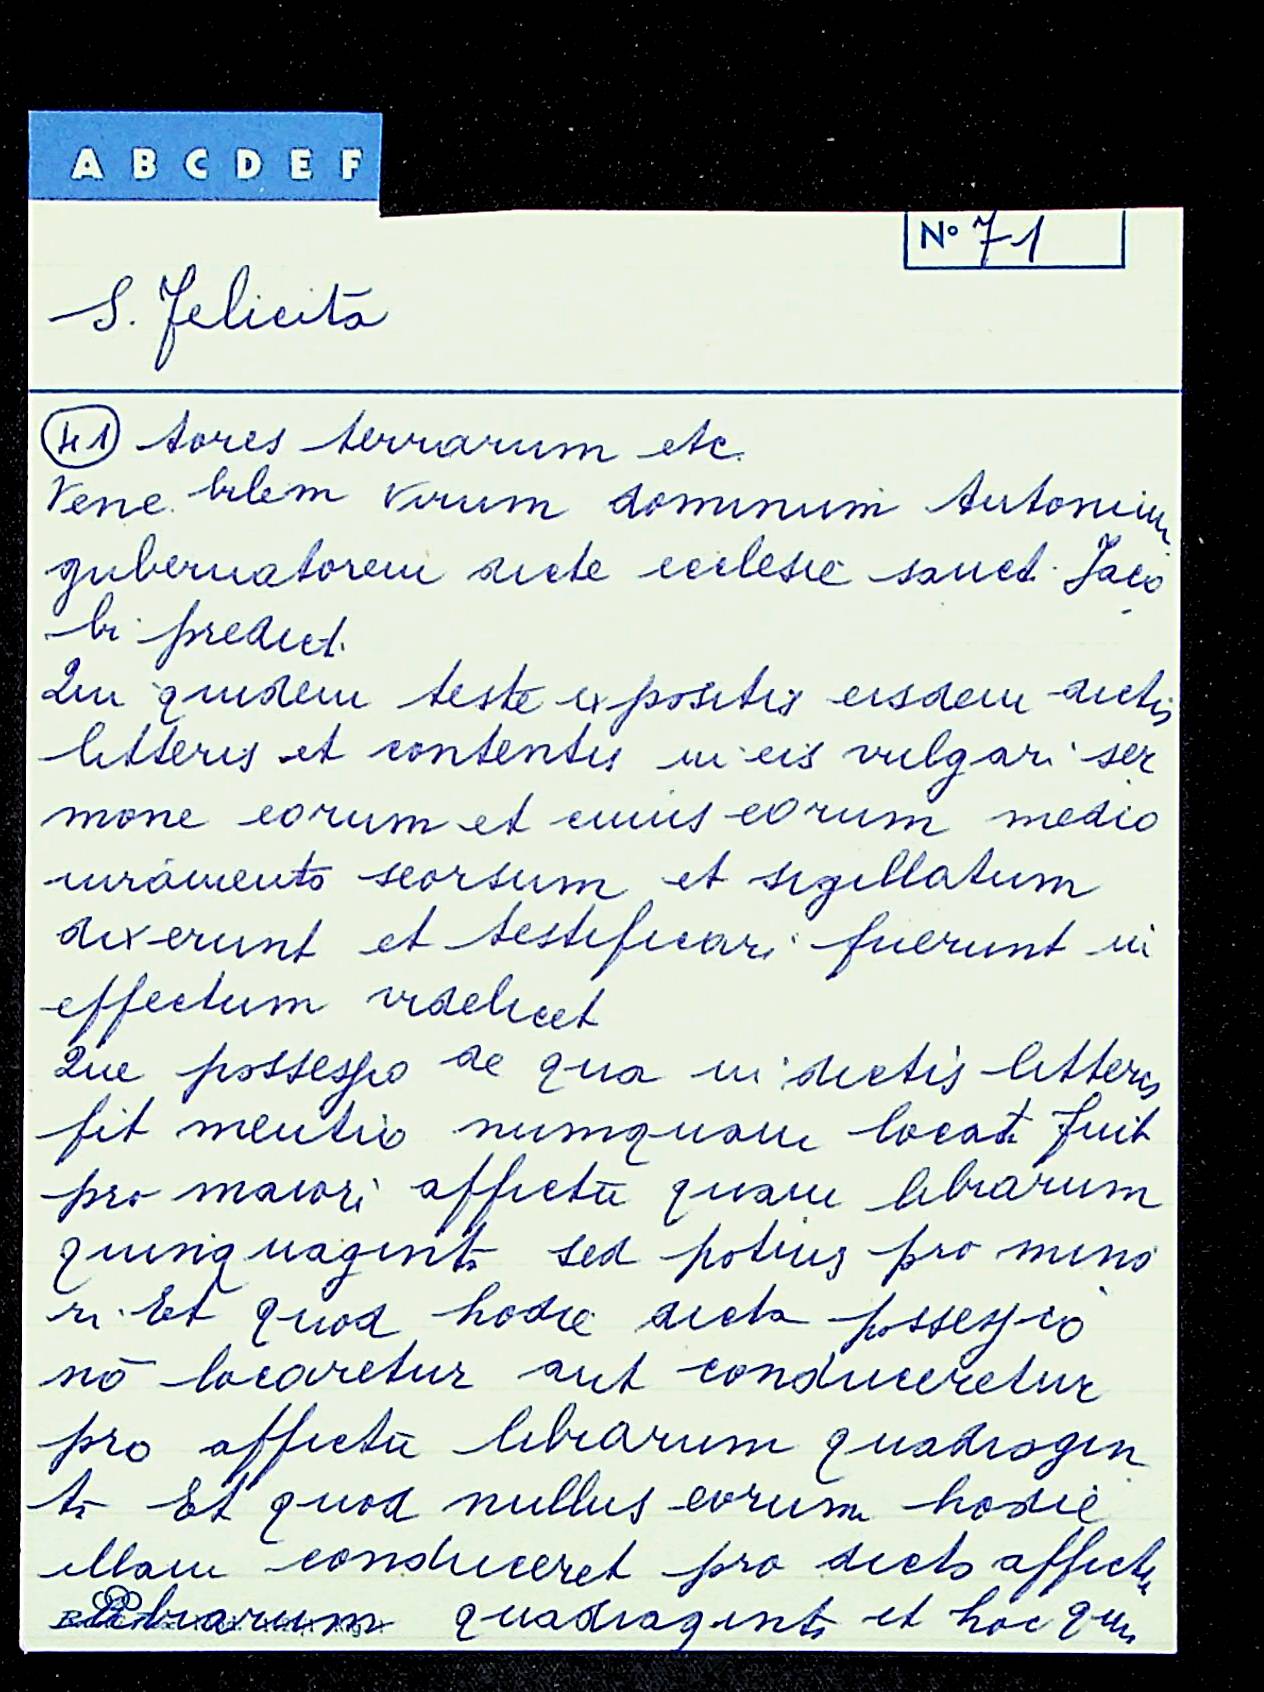 A B C D E F
Nº 71
S. Felicita
41 tores terrarum etc.
Vene. bilem virum dominum Antonium
gubernatorem dicte ecclesie sanct. Jaco
bi predict.
Qui quidem teste expositis eisdem dictis
litteris et contentis in eis vulgari ser
mone eorum et cuius eorum medio
iuramento seorsum et sigillatum
dixerunt et testificari fuerunt in
effectum videlicet
Que possessio de qua in dictis litteris
fit mentio numquam locat. fuit
pro maiori affictū quam librarum
quinquaginta sed potius pro mino
ri. Et quod hodie dicta possessio
nō locaretur aut conduceretur
pro affictū librarum quadragin
ta Et quod nullus eorum hodie
illam conduceret pro dicto affictu
librarum quadraginta et hoc quia